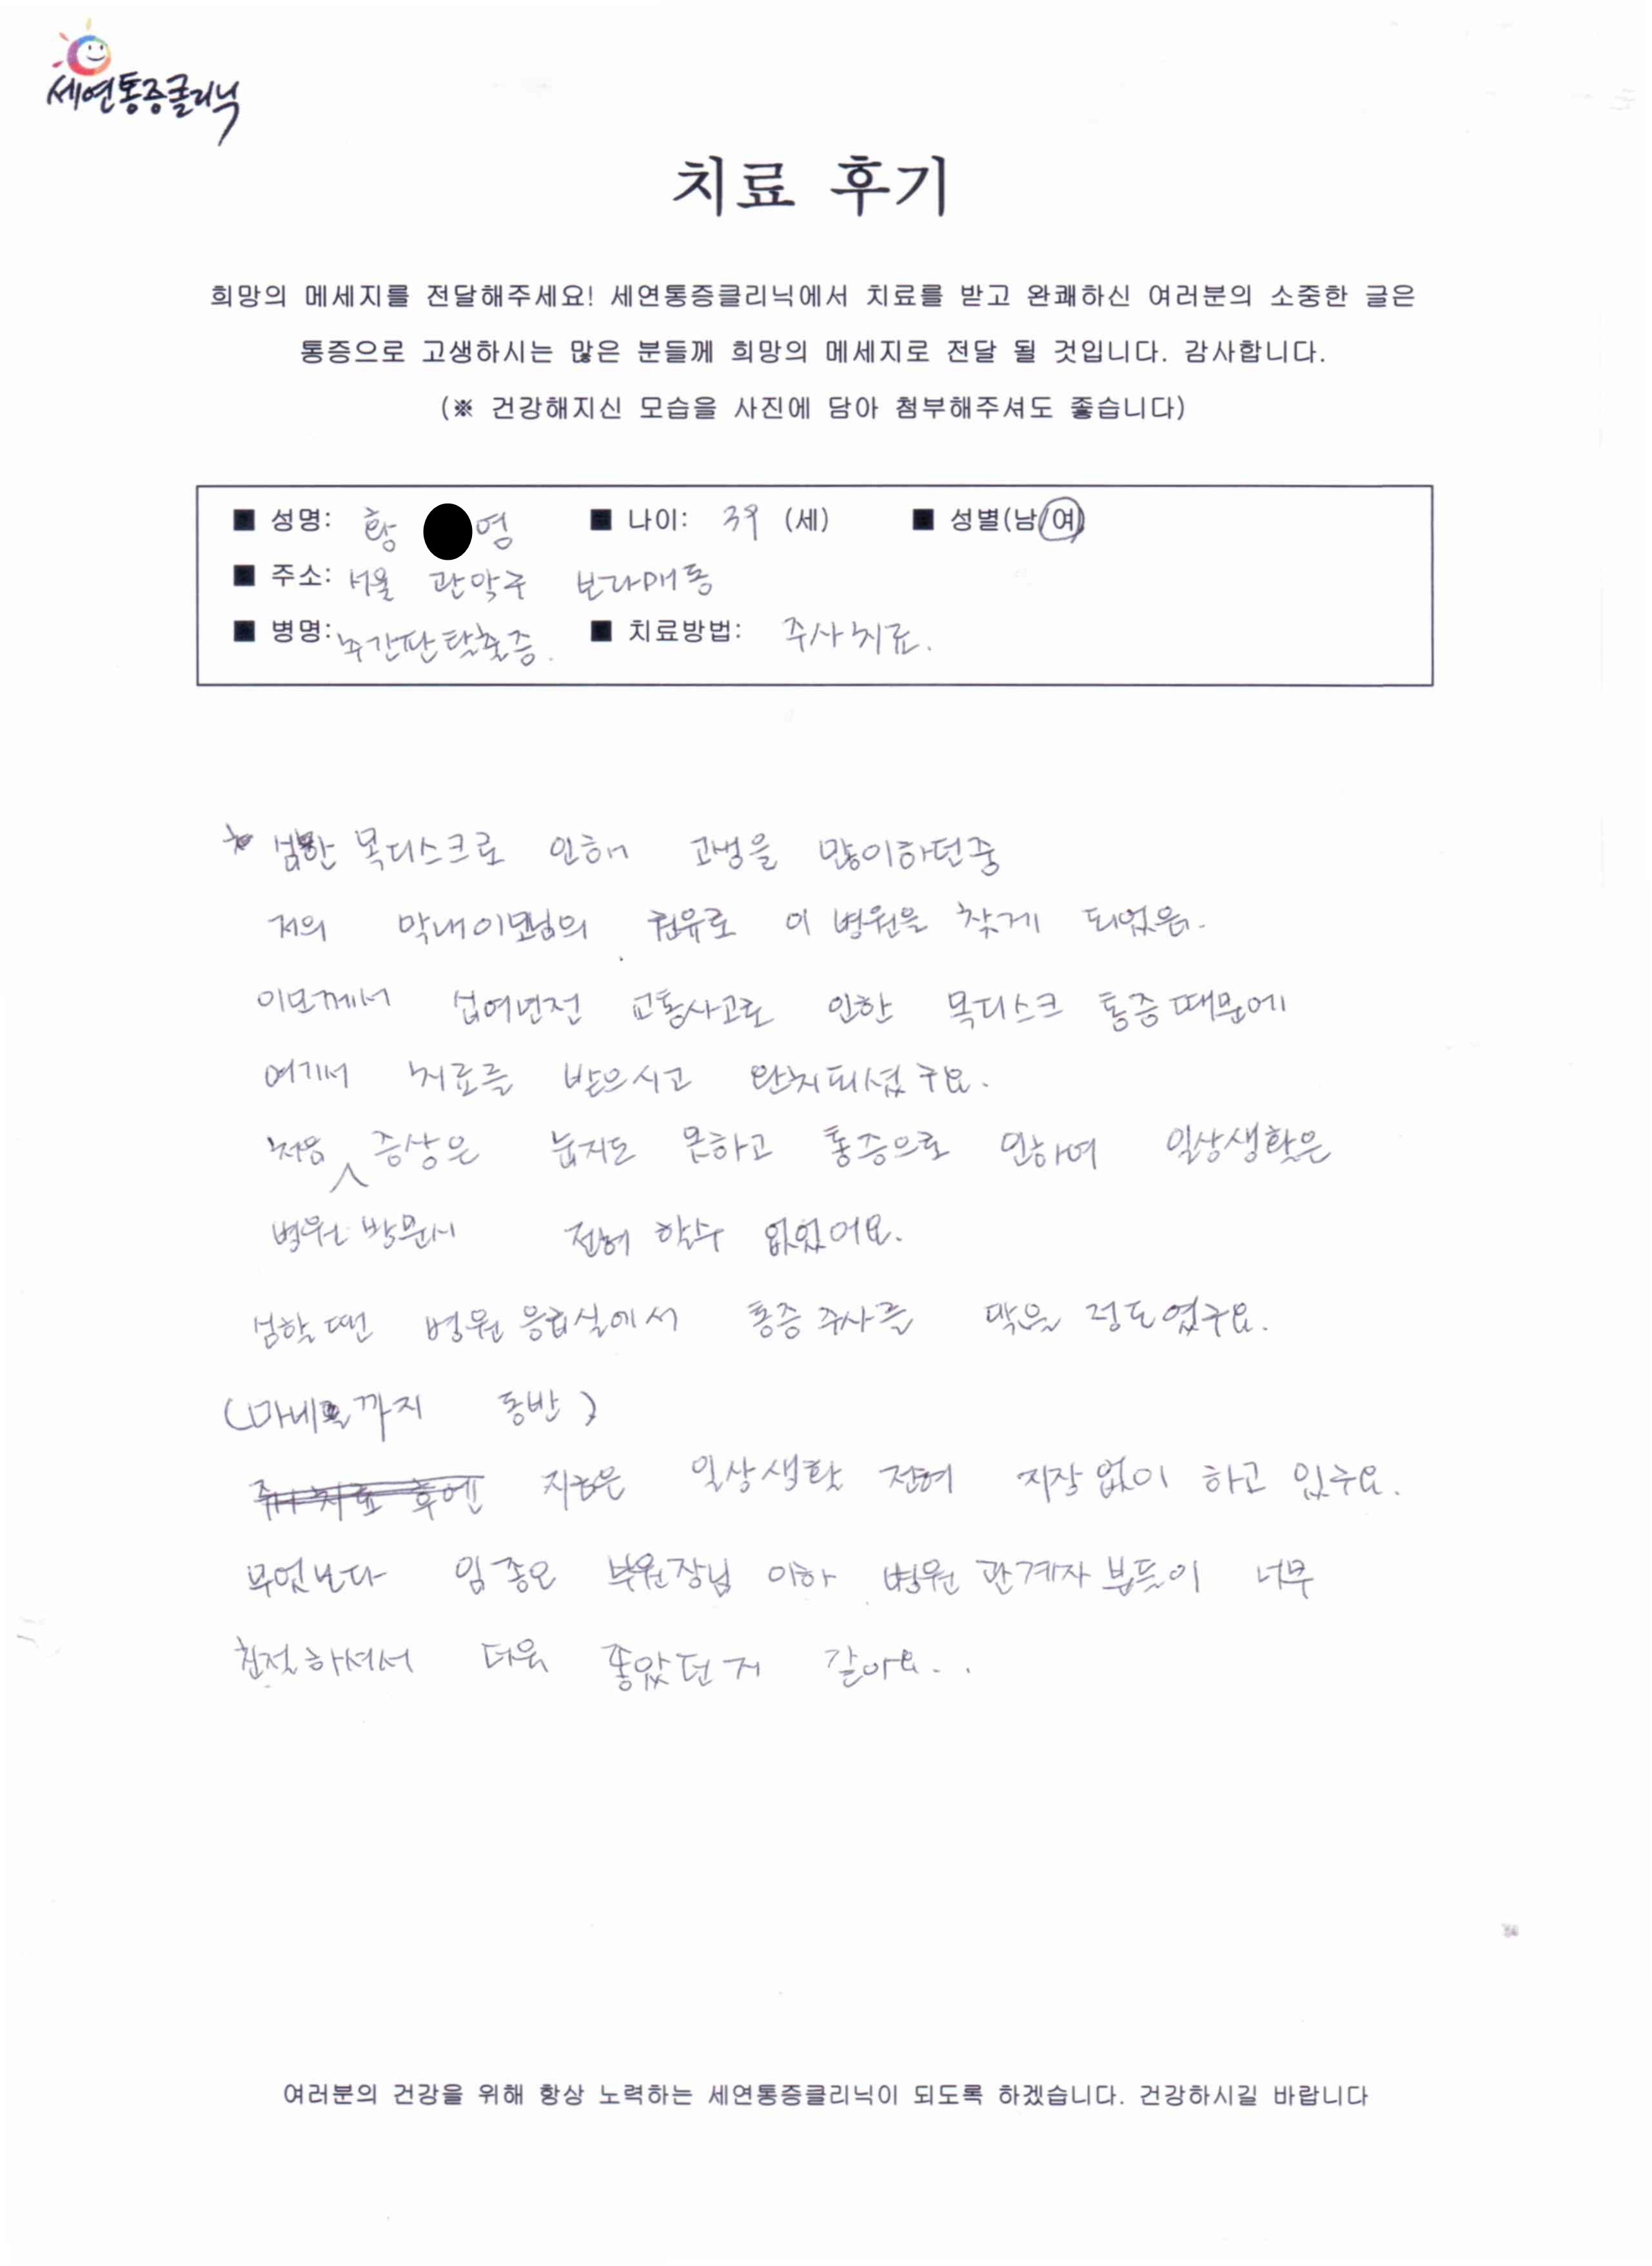 세연통증클리닉
치료 후기
희망의 메세지를 전달해주세요! 세연통증클리닉에서 치료를 받고 완쾌하신 여러분의 소중한 글은
통증으로 고생하시는 많은 분들께 희망의 메세지로 전달 될 것입니다. 감사합니다.
(※ 건강해지신 모습을 사진에 담아 첨부해주셔도 좋습니다)
■ 성명: 황 영 ■ 나이: 39 (세) ■ 성별(남/여)
■ 주소: 서울 관악구 보라매동
■ 병명: 추간판탈출증. ■ 치료방법: 주사치료.
심한 목디스크로 인해 고생을 많이하던중
저의 막내이모님의 권유로 이 병원을 찾게 되었음.
이모께서 십여년전 교통사고로 인한 목디스크 통증때문에
여기서 치료를 받으시고 완치되셨구요.
처음 증상은 눕지도 못하고 통증으로 인하여 일상생활은
병원 방문시 전혀 할수 없었어요.
심할땐 병원 응급실에서 통증주사를 맞을 정도였구요.
(마비까지 동반)
지금은 일상생활 전혀 지장없이 하고 있구요.
무엇보다 임종오 부원장님 이하 병원 관계자 분들이 너무
친절하셔서 더욱 좋았던거 같아요..
여러분의 건강을 위해 항상 노력하는 세연통증클리닉이 되도록 하겠습니다. 건강하시길 바랍니다